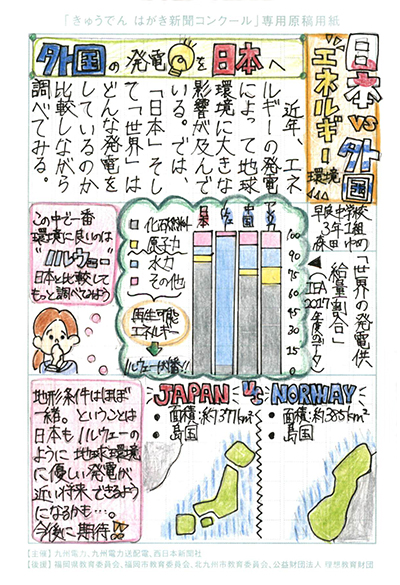 「きゅうでん はがき新聞コンクール」専用原稿用紙
日本vs外国
エネルギー環境
外国の発電を日本へ
近年、エネ
ルギーの発電
によって地球
環境に大きな
影響が及んで
いる。では、
「日本」そし
て「世界」は
どんな発電を
しているのか
比較しながら
調べてみる。
中学校
3年1組
「世界の発電供
給量割合」
(IEA
2017
年度のデータ)
日本
中国
アメリカ
100
90
75
60
45
30
15
0
化石燃料
原子力
水力
その他
再生可能
エネルギー
ノルウェーが1番!!
この中で一番
環境に良いのは
"ノルウェー"
日本と比較して
もっと調べてみよう
JAPAN VS NORWAY
面積:約377km²
島国
面積:約385km²
島国
地形条件はほぼ
一緒。ということは
日本もノルウェーの
ように地球環境
に優しい発電が
近い将来できるよう
になるかも…。
今後に期待!!
【主催】九州電力、九州電力送配電、西日本新聞社
【後援】福岡県教育委員会、福岡市教育委員会、北九州市教育委員会、公益財団法人 理想教育財団